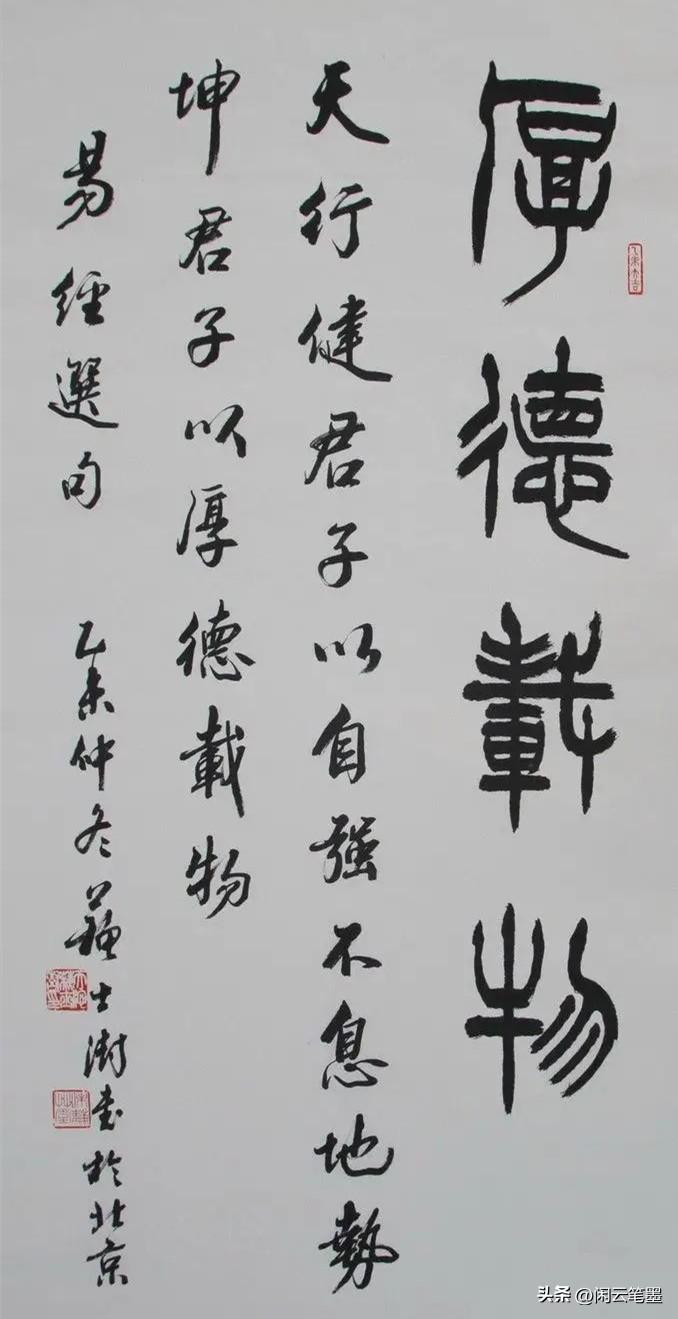 厚德載物
天行健君子以自強不息地勢
坤君子以厚德載物
易經選句
乙未仲冬蘇士澍書於北京
头条 @闲云笔墨